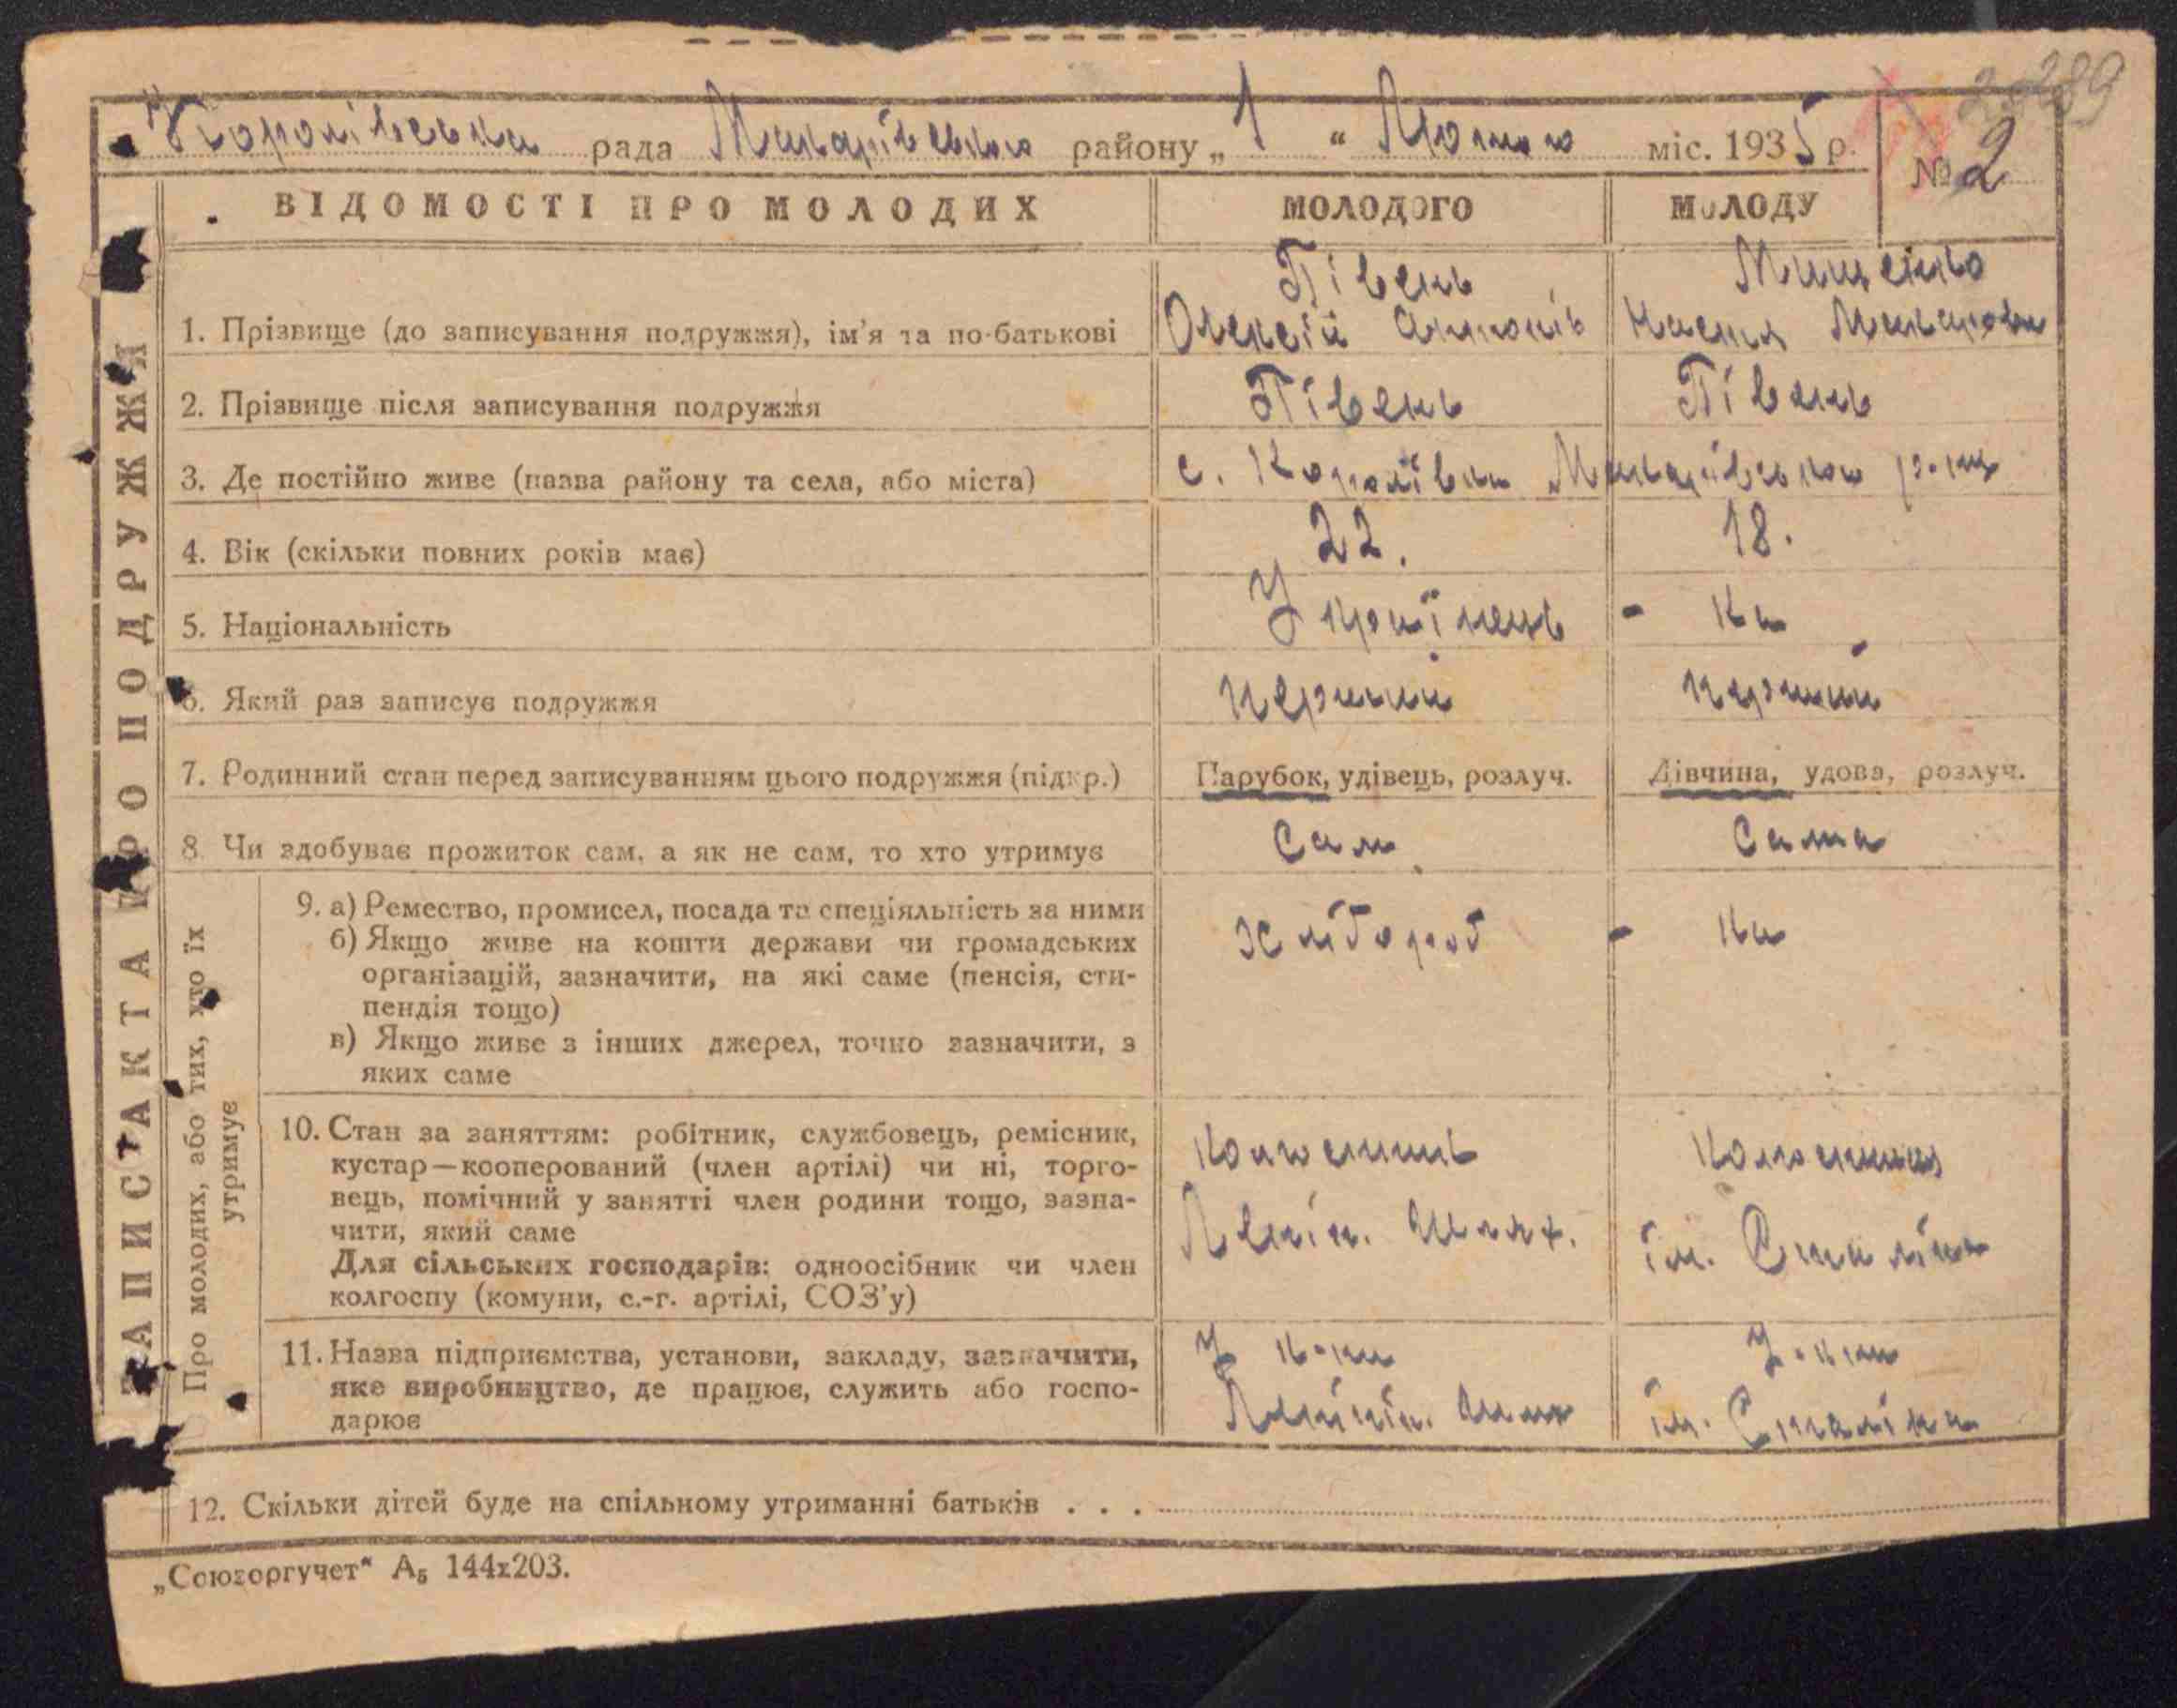 289
Королівська рада Макарівського району „1“ Лютого міс. 1935 р.
№ 2
ВІДОМОСТІ ПРО МОЛОДИХ МОЛОДОГО МОЛОДУ
ЗАПИС АКТА ПРО ПОДРУЖЖЯ
Півень Мищенко
1. Прізвище (до записування подружжя), ім'я та по-батькові Олексій Антонів Настя Макарова
2. Прізвище після записування подружжя Півень Півень
3. Де постійно живе (назва району та села, або міста) с. Королівка Макарівського р-ну
4. Вік (скільки повних років має) 22. 18.
5. Національність Українець - ка
6. Який раз записує подружжя перший перший
7. Родинний стан перед записуванням цього подружжя (підкр.) Парубок, удівець, розлуч. Дівчина, удова, розлуч.
8. Чи здобуває прожиток сам, а як не сам, то хто утримує Сам Сама
Про молодих, або тих, хто їх
утримує
9. а) Ремество, промисел, посада та спеціяльність за ними хлібороб - ка
б) Якщо живе на кошти держави чи громадських
організацій, зазначити, на які саме (пенсія, сти-
пендія тощо)
в) Якщо живе з інших джерел, точно зазначити, з
яких саме
10. Стан за заняттям: робітник, службовець, ремісник, Колгоспник Колгоспниця
кустар—кооперований (член артілі) чи ні, торго-
вець, помічний у занятті член родини тощо, зазна- Ленін. Шлях.
чити, який саме ім. Сталіна
Для сільських господарів: одноосібник чи член
колгоспу (комуни, с.-г. артілі, СОЗ'у)
11. Назва підприємства, установи, закладу, зазначити, У к-пі У к-пі
яке виробництво, де працює, служить або госпо- Ленінін. Шлях ім. Сталіна
дарює
12. Скільки дітей буде на спільному утриманні батьків . . .
„Союзоргучет“ А₅ 144х203.